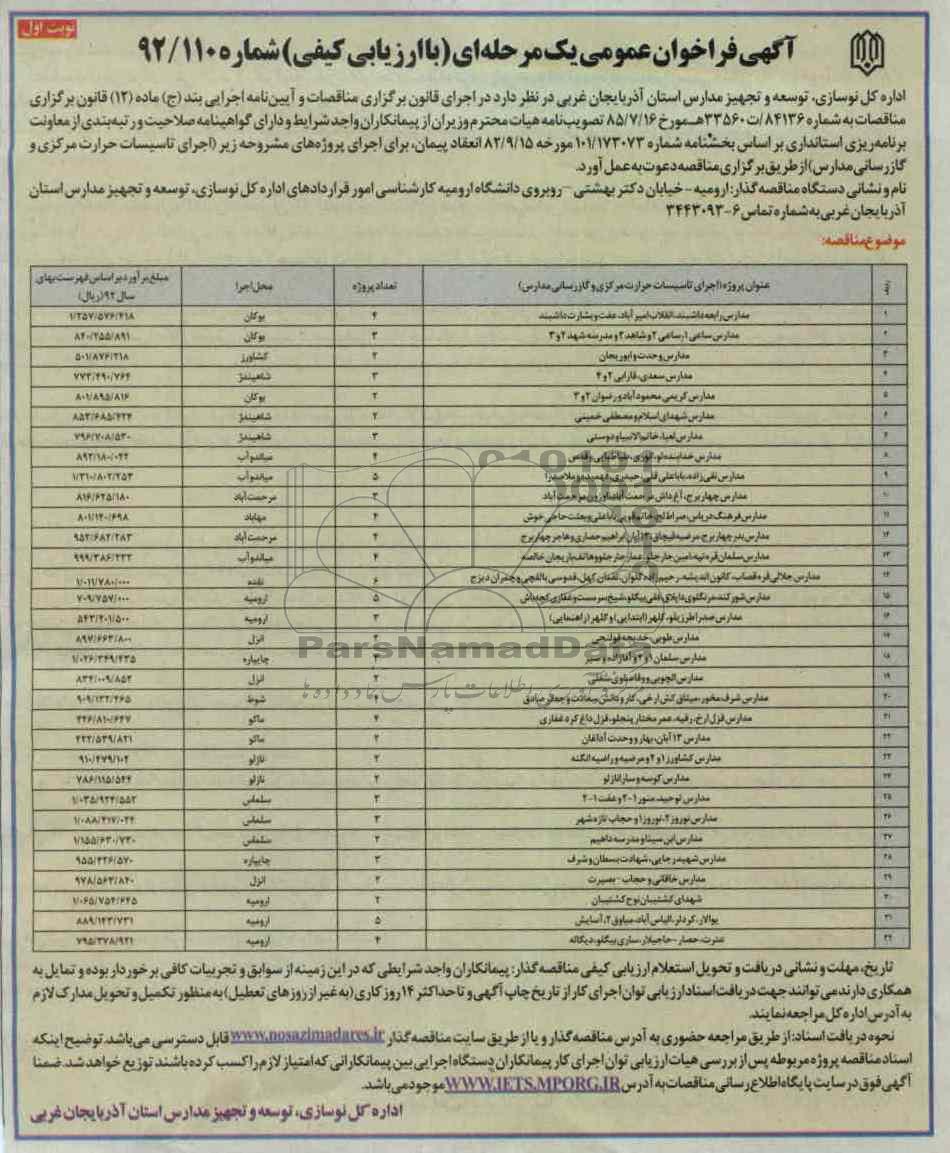 نوبت اول
آگهی فراخوان عمومی یک مرحله‌ای (با ارزیابی کیفی) شماره ۹۲/۱۱۰
اداره کل نوسازی، توسعه و تجهیز مدارس استان آذربایجان غربی در نظر دارد در اجرای قانون برگزاری مناقصات و آیین‌نامه اجرایی بند (ج) ماده (۱۲) قانون برگزاری
مناقصات به شماره ۸۴۱۳۶/ت ۳۳۵۶۰هـ مورخ ۸۵/۷/۱۶ تصویب‌نامه هیات محترم وزیران از پیمانکاران واجد شرایط و دارای گواهینامه صلاحیت و رتبه‌بندی از معاونت
برنامه‌ریزی استانداری بر اساس بخشنامه شماره ۱۰۱/۱۷۳۰۷۳ مورخه ۸۲/۹/۱۵ انعقاد پیمان، برای اجرای پروژه‌های مشروحه زیر (اجرای تاسیسات حرارت مرکزی و
گازرسانی مدارس) از طریق برگزاری مناقصه دعوت به عمل آورد.
نام و نشانی دستگاه مناقصه گذار: ارومیه - خیابان دکتر بهشتی - روبروی دانشگاه ارومیه کارشناسی امور قراردادهای اداره کل نوسازی، توسعه و تجهیز مدارس استان
آذربایجان غربی به شماره تماس ۶-۳۴۴۳۰۹۳
موضوع مناقصه:
ردیف عنوان پروژه (اجرای تاسیسات حرارت مرکزی و گازرسانی مدارس) تعداد پروژه محل اجرا مبلغ برآورد بر اساس فهرست بهای سال ۹۲ (ریال)
۱ مدارس رابعه داشبند، انقلاب امیرآباد، عفت و بشارت داشبند ۴ بوکان ۱/۲۵۷/۵۷۶/۴۱۸
۲ مدارس ساعی ۱، ساعی ۲ و شاهد ۲ و مدرسه شهد ۲ و ۳ ۳ بوکان ۸۴۰/۲۵۵/۸۹۱
۳ مدارس وحدت و ابوریحان ۲ کشاورز ۵۰۱/۸۷۶/۲۱۸
۴ مدارس سعدی، فارابی ۲ و ۴ ۳ شاهیندژ ۷۷۳/۴۹۰/۷۶۴
۵ مدارس کریمی محمودآباد و رضوان ۲ و ۳ ۲ بوکان ۸۰۱/۸۹۵/۸۱۶
۶ مدارس شهدای اسلام و مصطفی خمینی ۲ شاهیندژ ۸۵۳/۶۸۵/۴۲۴
۷ مدارس لعیا، خاتم الانبیا و دوستی ۳ شاهیندژ ۷۹۶/۷۰۸/۵۳۰
۸ مدارس خداینده لو، انوری، طباطبایی و قدس ۴ میاندوآب ۸۹۲/۱۸۰/۰۴۲
۹ مدارس تقی زاده، باباعلی قلی، حیدری، فهمیده و ملاصدرا ۵ میاندوآب ۱/۳۱۰/۸۰۲/۲۵۳
۱۰ مدارس چهاربرج، آغ داش مرحمت آباد و مرحمت آباد ۳ مرحمت آباد ۸۱۶/۶۲۵/۱۸۰
۱۱ مدارس فرهنگ درباس، صراط و بعثت حاجی خوش ۴ مهاباد ۸۰۱/۱۴۰/۶۹۸
۱۲ مدارس بدر چهاربرج، مرضیه قپچاق، ۱۳ آبان، ابراهیم حصاری و هاجر چهاربرج ۴ مرحمت آباد ۹۵۲/۶۸۲/۲۸۳
۱۳ مدارس سلمان قره تپه، امین جارجلو، عمار جارجلو و هاتف باریجان خالصه ۴ میاندوآب ۹۹۹/۳۸۶/۲۳۳
۱۴ مدارس جلالی قره قصاب، کانون اندیشه، رحیم زاده گلوان، لقمان کهل، قدوسی بالقچی و چمران دیزج ۶ نقده ۱/۰۱۱/۷۸۰/۰۰۰
۱۵ مدارس شورکند، خرنگلوی، شیخ سرمست و غفاری ۵ ارومیه ۷۰۹/۷۵۷/۰۰۰
۱۶ مدارس صدرا طرزیلو، گلهر (ابتدایی) و گلهر (راهنمایی) ۳ ارومیه ۵۴۳/۲۰۱/۵۰۰
۱۷ مدارس طوبی، خدیجه قولنجی ۲ انزل ۸۹۷/۶۶۳/۸۰۰
۱۸ مدارس سلمان ۱ و ۲ و آقازاده و سیز چایپاره ۱/۰۲۶/۳۴۹/۴۳۵
۱۹ مدارس التچوبی و وقاصلوی سفلی ۲ انزل ۸۳۴/۰۰۹/۸۵۲
۲۰ مدارس شرف مخور، میثاق کش ارخی، کار و دانش سعادت و جعفر صادق شوط ۹۰۹/۱۳۲/۴۶۵
۲۱ مدارس قزل ارخ، رقیه، عمر مختار پنجلو، قزل داغ کرد غفاری ۴ ماکو ۴۴۶/۸۱۰/۶۴۷
۲۲ مدارس ۱۳ آبان، بهار و وحدت آداغان ۳ ماکو ۴۲۲/۵۴۹/۸۲۱
۲۳ مدارس کشاورز ۱ و ۲ و مرضیه و راضیه انگنه ۲ نازلو ۹۱۰/۴۷۹/۱۰۲
۲۴ مدارس کوسه و سارا نازلو ۲ نازلو ۷۸۶/۱۱۵/۵۴۴
۲۵ مدارس توحید، منور ۱-۲ و عفت ۱-۲ ۲ سلماس ۱/۰۳۵/۹۲۴/۵۵۲
۲۶ مدارس نوروز ۲، نوروز ۱ و حجاب تازه شهر ۳ سلماس ۱/۰۸۸/۴۱۷/۰۲۴
۲۷ مدارس ابن سینا و مدرسه داهیم ۲ سلماس ۱/۱۵۵/۶۳۰/۷۳۰
۲۸ مدارس شهید رجایی، شهادت بسطان و شرف ۳ چایپاره ۹۵۵/۴۲۶/۵۷۰
۲۹ مدارس خاقانی و حجاب - بصیرت ۲ انزل ۹۷۸/۵۶۳/۸۴۰
۳۰ شهدای کشتیبان نوح کشتیبان ۲ ارومیه ۱/۰۶۵/۷۵۴/۶۴۵
۳۱ بوالار، کردلر، الیاس آباد، میاوق ۲، آسایش ۵ ارومیه ۸۸۹/۱۴۳/۷۳۱
۳۲ عترت، حصار - حاجیلار، ساری بیگلو، دیگاله ۴ ارومیه ۷۹۵/۳۷۸/۹۲۱
تاریخ، مهلت و نشانی دریافت و تحویل استعلام ارزیابی کیفی مناقصه گذار: پیمانکاران واجد شرایطی که در این زمینه از سوابق و تجربیات کافی برخوردار بوده و تمایل به
همکاری دارند می توانند جهت دریافت اسناد ارزیابی توان اجرای کار از تاریخ چاپ آگهی و تا حداکثر ۱۴ روز کاری (به غیر از روزهای تعطیل) به منظور تکمیل و تحویل مدارک لازم
به آدرس اداره کل مراجعه نمایند.
نحوه دریافت اسناد: از طریق مراجعه حضوری به آدرس مناقصه گذار و یا از طریق سایت مناقصه گذار www.nosazimadares.ir قابل دسترسی می باشد. توضیح اینکه
اسناد مناقصه پروژه مربوطه پس از بررسی هیات ارزیابی توان اجرای کار پیمانکاران دستگاه اجرایی بین پیمانکارانی که امتیاز لازم را کسب کرده باشند توزیع خواهد شد. ضمنا
آگهی فوق در سایت پایگاه اطلاع رسانی مناقصات به آدرس WWW.IETS.MPORG.IR موجود می باشد.
اداره کل نوسازی، توسعه و تجهیز مدارس استان آذربایجان غربی
ParsNamadData